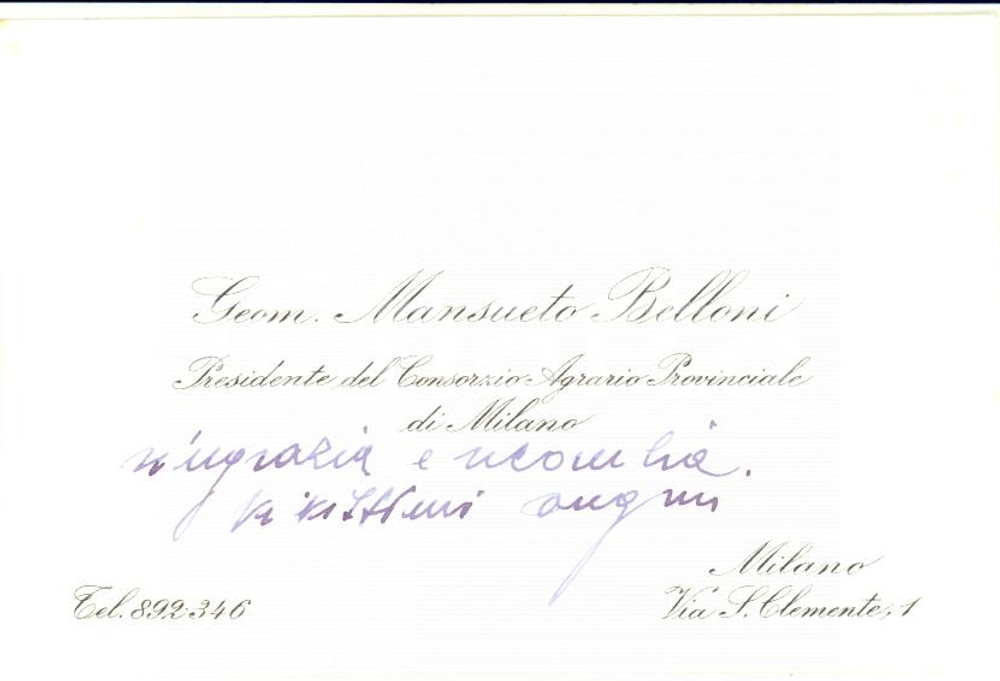 Geom. Mansueto Belloni
Presidente del Consorzio Agrario Provinciale
di Milano
ringrazia e ricambia.
vivissimi auguri
Milano
Tel. 892.346
Via S. Clemente, 1